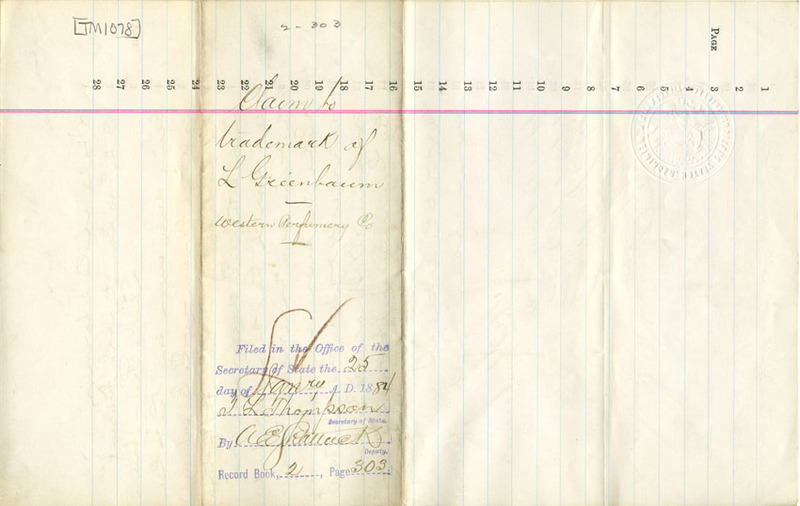 [TM1078]
2-303
PAGE
1 2 3 4 5 6 7 8 9 10 11 12 13 14 15 16 17 18 19 20 21 22 23 24 25 26 27 28
Claim to
trademark of
L Greenbaum
Western Perfumery Co
Filed in the Office of the
Secretary of State the 25
day of Janry A. D. 1884
T L Thompson
Secretary of State.
By A E
Deputy.
Record Book, 2, Page 303